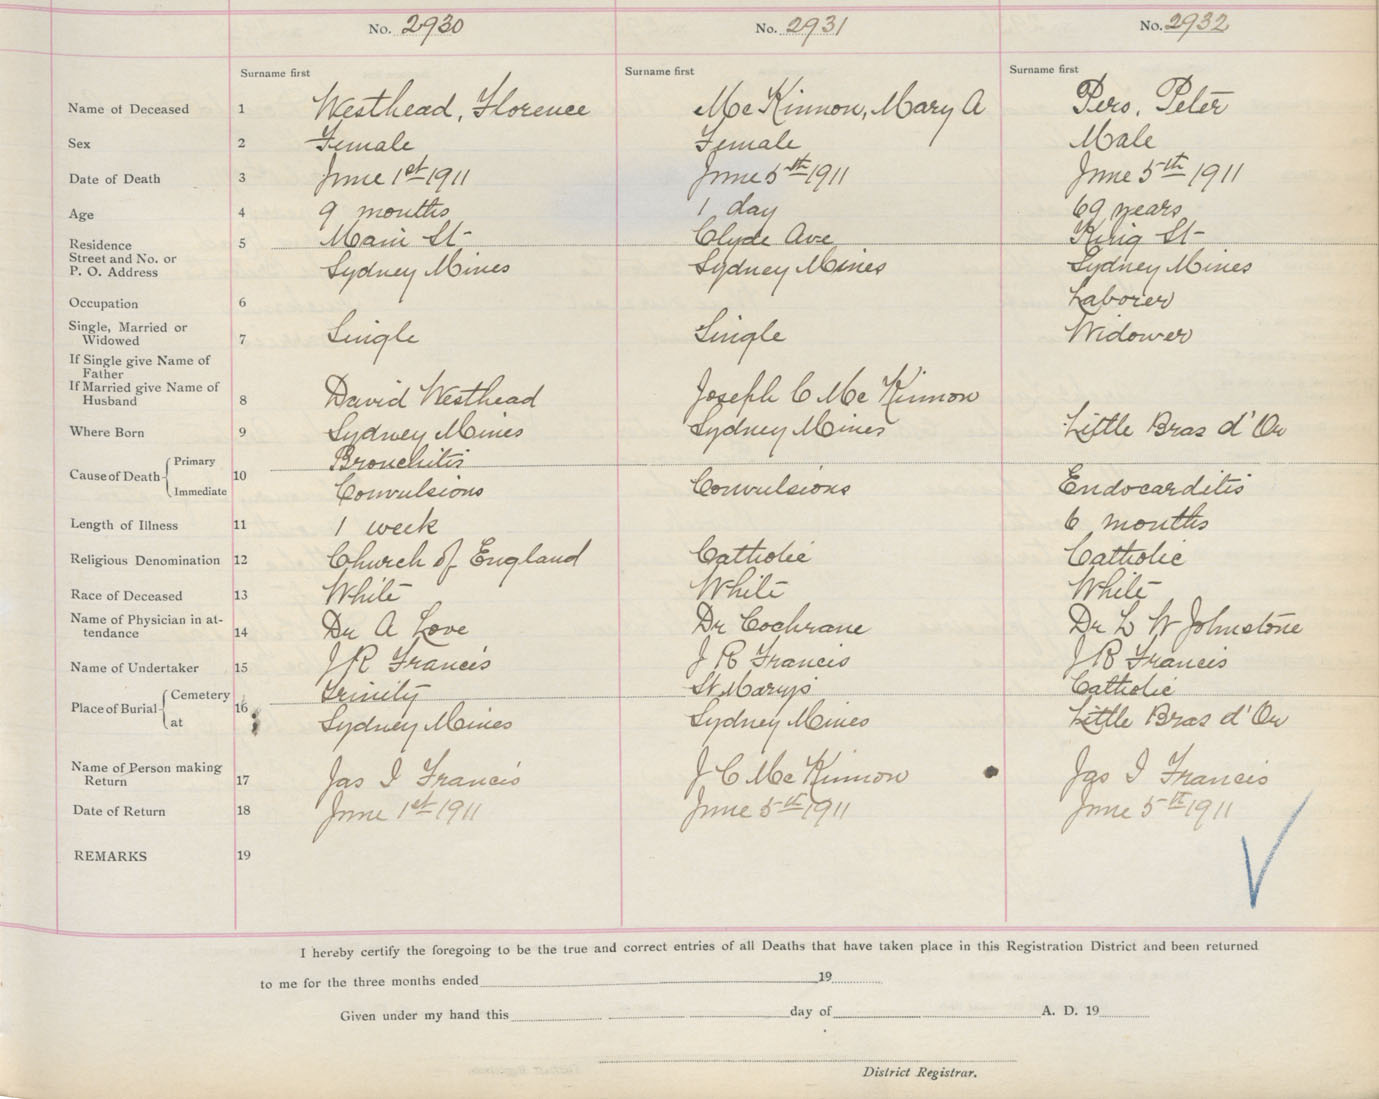 No. 2930 No. 2931 No. 2932
Surname first Surname first Surname first
Name of Deceased 1 Westhead, Florence Mc Kinnon, Mary A Pero, Peter
Sex 2 Female Female Male
Date of Death 3 June 1st 1911 June 5th 1911 June 5th 1911
Age 4 9 months 1 day 69 years
Residence 5 Main St Clyde Ave King St
Street and No. or
P. O. Address Sydney Mines Sydney Mines Sydney Mines
Occupation 6 Laborer
Single, Married or
Widowed 7 Single Single Widower
If Single give Name of
Father
If Married give Name of
Husband 8 David Westhead Joseph C Mc Kinnon
Where Born 9 Sydney Mines Sydney Mines Little Bras d'Or
Cause of Death Primary 10 Bronchitis
Immediate Convulsions Convulsions Endocarditis
Length of Illness 11 1 week 6 months
Religious Denomination 12 Church of England Catholic Catholic
Race of Deceased 13 White White White
Name of Physician in at-
tendance 14 Dr A Love Dr Cochrane Dr L W Johnstone
Name of Undertaker 15 J R Francis J R Francis J R Francis
Place of Burial Cemetery 16 Trinity St Mary's Catholic
at Sydney Mines Sydney Mines Little Bras d'Or
Name of Person making
Return 17 Jas I Francis J C Mc Kinnon Jas I Francis
Date of Return 18 June 1st 1911 June 5th 1911 June 5th 1911
REMARKS 19
I hereby certify the foregoing to be the true and correct entries of all Deaths that have taken place in this Registration District and been returned
to me for the three months ended 19
Given under my hand this day of A. D. 19
District Registrar.